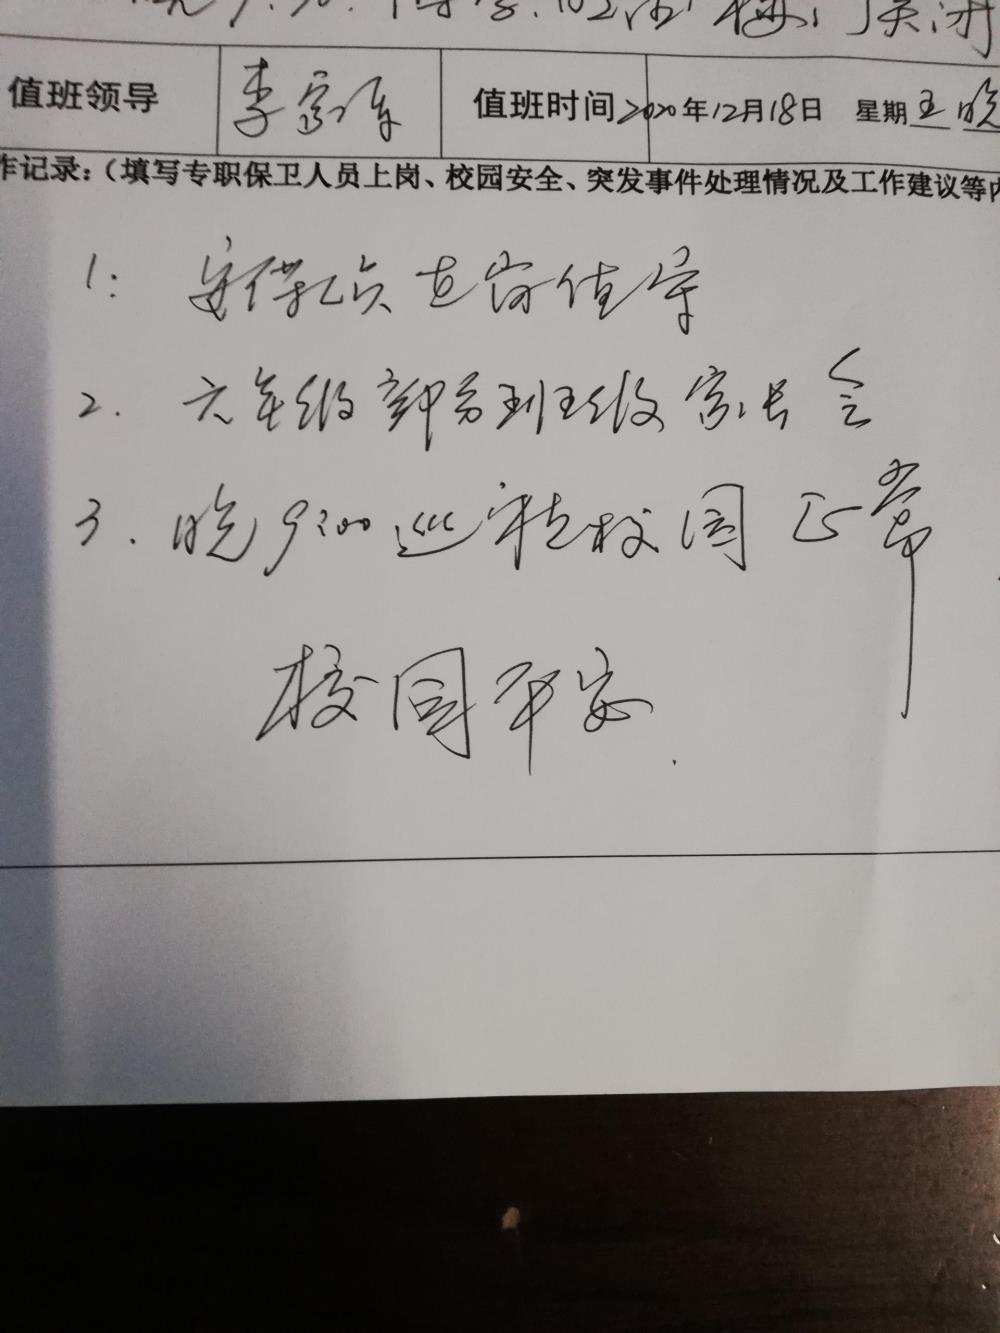 晚9:30.
楼门关闭
值班领导 李家军 值班时间 2020年12月18日 星期五晚
作记录:(填写专职保卫人员上岗、校园安全、突发事件处理情况及工作建议等内
1: 安保人员在岗值守
2. 六年级部分班级家长会
3. 晚9:00巡查校园正常
校园平安.